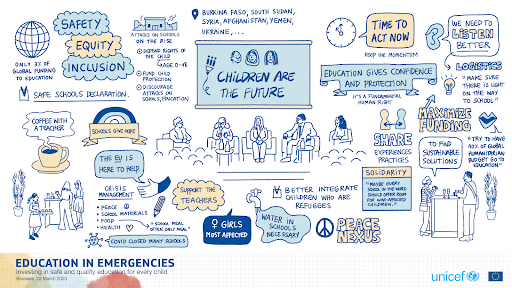 SAFETY
EQUITY
INCLUSION
ONLY 3% OF
GLOBAL FUNDING
TO EDUCATION
ATTACKS ON SCHOOLS
ON THE RISE
DEFEND RIGHTS OF
THE CHILD
AGE 0-18
FUND CHILD
PROTECTION
DISCOURAGE
ATTACKS ON
SCHOOLS, EDUCATION
SAFE SCHOOLS DECLARATION
COFFEE WITH
A TEACHER
SCHOOLS GIVE HOPE
THE EU IS
HERE TO HELP
CRISIS
MANAGEMENT
PEACE
SCHOOL MATERIALS
FOOD
HEALTH
"SCHOOL MEAL
OFTEN ONLY MEAL"
COVID CLOSED MANY SCHOOLS
BURKINA FASO, SOUTH SUDAN,
SYRIA, AFGHANISTAN, YEMEN,
UKRAINE, ...
CHILDREN ARE
THE FUTURE
SUPPORT THE
TEACHERS
GIRLS
MOST AFFECTED
BETTER INTEGRATE
CHILDREN WHO ARE
REFUGEES
WATER IN
SCHOOLS
NECESSARY
PEACE
NEXUS
TIME TO
ACT NOW
KEEP THE MOMENTUM
EDUCATION GIVES CONFIDENCE
AND PROTECTION
IT'S A FUNDAMENTAL
HUMAN RIGHT
SHARE
EXPERIENCES
PRACTICES
SOLIDARITY
"MAYBE EVERY
SCHOOL IN THE WORLD
SHOULD OFFER ROOM
FOR WAR-AFFECTED
CHILDREN."
WE NEED TO
LISTEN
BETTER
LOGISTICS
"MAKE SURE
THERE IS LIGHT
ON THE WAY
TO SCHOOL"
MAXIMIZE
FUNDING
TO FIND
SUSTAINABLE
SOLUTIONS
"TRY TO HAVE
10% OF GLOBAL
HUMANITARIAN
BUDGET GO TO
EDUCATION"
EDUCATION IN EMERGENCIES
Investing in safe and quality education for every child
Brussels, 22 March 2023
unicef